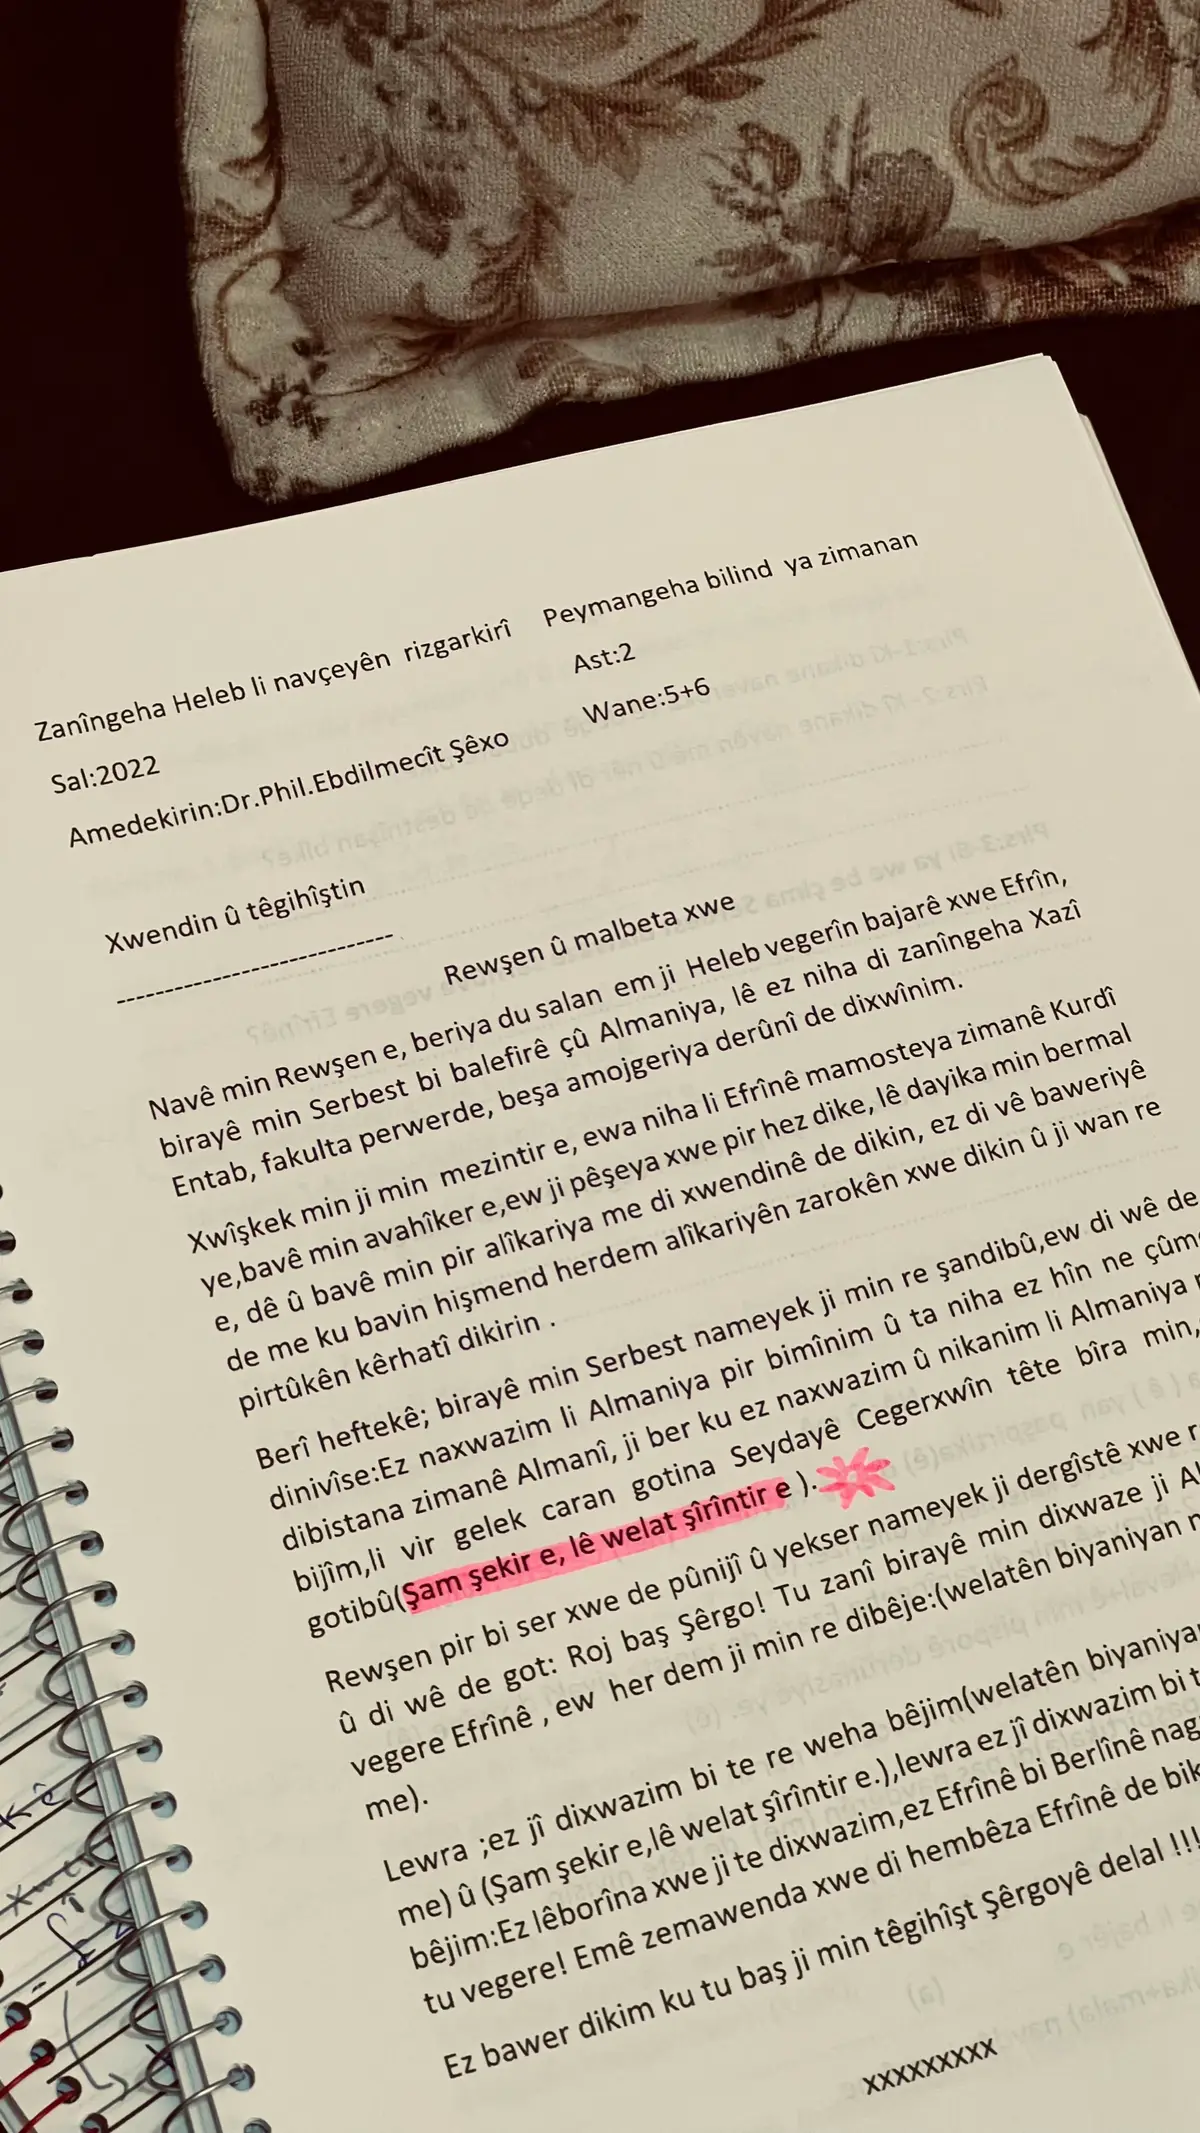 Zanîngeha Heleb li navçeyên rizgarkirî Peymangeha bilind ya zimanan
Sal:2022 Ast:2
Amedekirin:Dr.Phil.Ebdilmecît Şêxo Wane:5+6
Xwendin û têgihîştin
Rewşen û malbeta xwe
Navê min Rewşen e, beriya du salan em ji Heleb vegerîn bajarê xwe Efrîn,
birayê min Serbest bi balefirê çû Almaniya, lê ez niha di zanîngeha Xazî
Entab, fakulta perwerde, beşa amojgeriya derûnî de dixwînim.
Xwîşkek min ji min mezintir e, ewa niha li Efrînê mamosteya zimanê Kurdî
ye,bavê min avahîker e,ew ji pêşeya xwe pir hez dike, lê dayika min bermal
e, dê û bavê min pir alîkariya me di xwendinê de dikin, ez di vê baweriyê
de me ku bavin hişmend herdem alîkariyên zarokên xwe dikin û ji wan re
pirtûkên kêrhatî dikirin .
Berî heftekê; birayê min Serbest nameyek ji min re şandibû,ew di wê de
dinivîse:Ez naxwazim li Almaniya pir bimînim û ta niha ez hîn ne
dibistana zimanê Almanî, ji ber ku ez naxwazim û nikanim li Almaniya
bijîm,li vir gelek caran gotina Seydayê Cegerxwîn tête bîra min,
gotibû(Şam şekir e, lê welat şîrîntir e ).
Rewşen pir bi ser xwe de pûnijî û yekser nameyek ji dergîstê xwe
û di wê de got: Roj baş Şêrgo! Tu zanî birayê min dixwaze ji
vegere Efrînê , ew her dem ji min re dibêje:(welatên biyaniyan
me).
Lewra ;ez jî dixwazim bi te re weha bêjim(welatên
me) û (Şam şekir e,lê welat şîrîntir e.),lewra ez jî dixwazim bi
bêjim:Ez lêborîna xwe ji te dixwazim,ez Efrînê bi Berlînê
tu vegere! Emê zemawenda xwe di hembêza Efrînê de
Ez bawer dikim ku tu baş ji min têgihîşt Şêrgoyê delal !!!
xxxxxxxxx